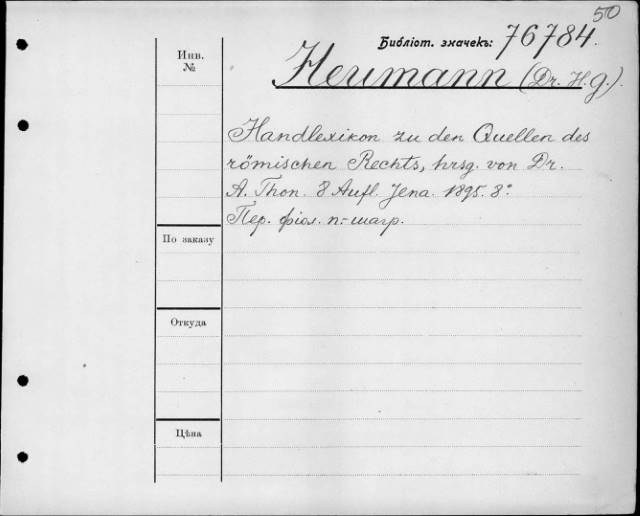 50
Библіот. значекъ: 76784.
Инв.
№
Heumann (Dr. H. G.).
Handlexikon zu den Quellen des
römischen Rechts, hrsg. von Dr.
A. Thon. 8 Aufl. Jena. 1895. 8°
Пер. фіол. п.-шагр.
По заказу
Откуда
Цѣна